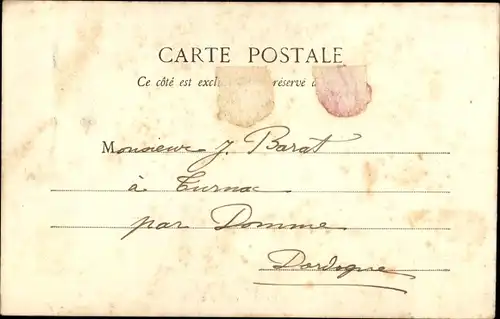 CARTE POSTALE
Ce côté est réservé
Monsieur J. Barat
à Turnac
par Domme
Dordogne